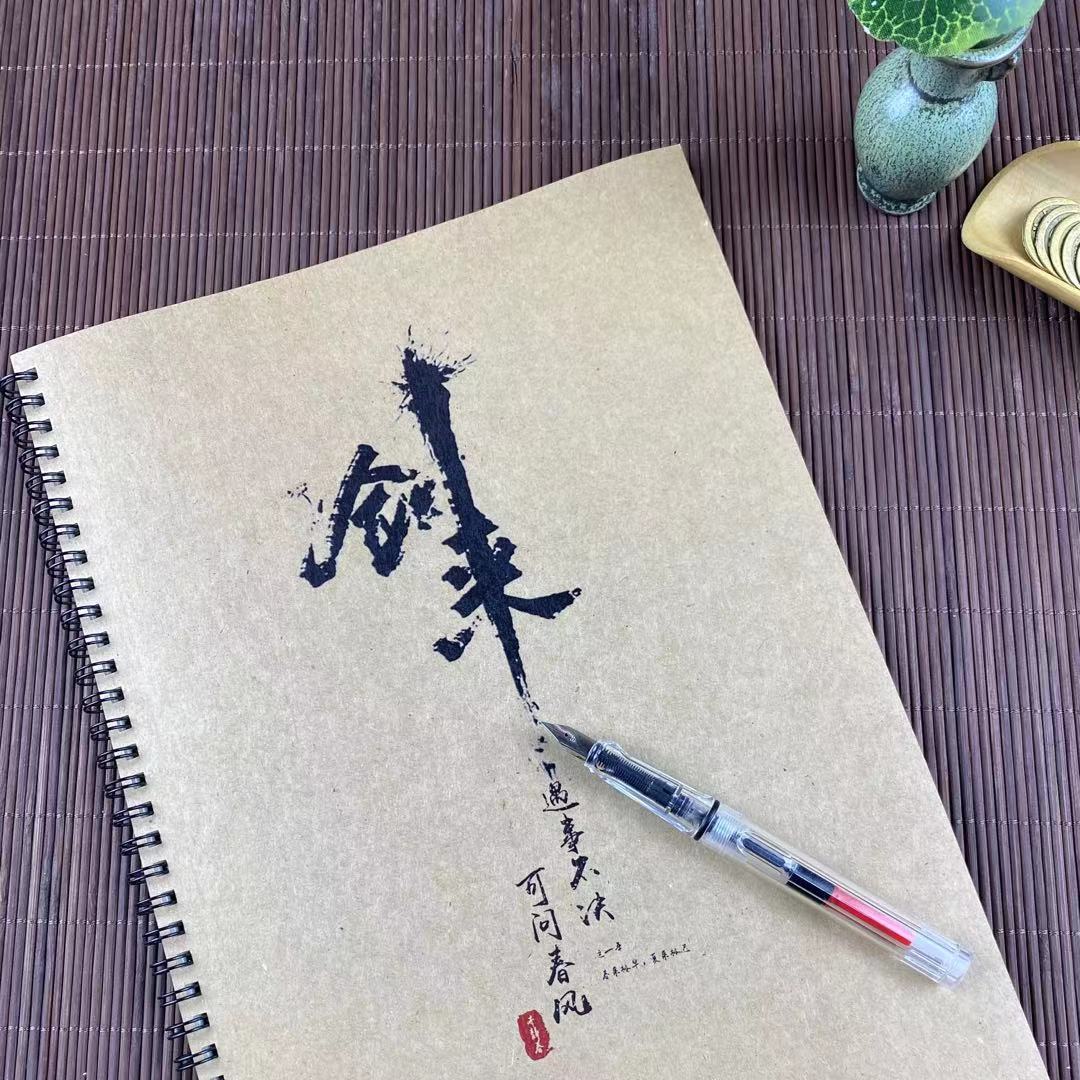 剑来
遇事不决
可问春风